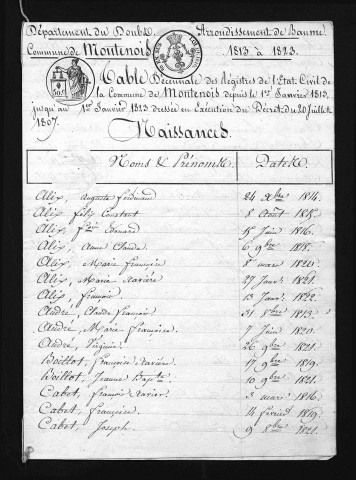 Département du Doubs. Arrondissement de Baume.
Commune de Montenois 1813 à 1823.
Table Décennale des Registres de l'Etat Civil de
la Commune de Montenois depuis le 1er Janvier 1813,
jusqu'au 1er Janvier 1823 dressée en Exécution du Décret du 20 Juillet
1807.
Naissances.
Noms & Prénoms. Dates.
Alix, Auguste Ferdinand 24 Xbre 1814.
Alix Félix Constant 8 Août 1815.
Alix, Edouard 15 Juin 1816.
Alix, Anne Claude. 6 9bre 1818.
Alix, Marie Françoise 8 mars 1820.
Alix, Marie Xavière 27 Janv. 1821.
Alix, François 13 Janv. 1822.
André, Claude François 31 8bre 1813.
André, Marie Françoise. 7 Juin 1820.
André, Virginie. 26 9bre 1821.
Boillot, Françoise Xavière 17 9bre 1819.
Boillot, Jeanne Bapte. 10 9bre 1821.
Cabet, François Xavier. 3 mars 1816.
Cabet, Françoise. 14 février 1819.
Cabet, Joseph. 19 8bre 1821.